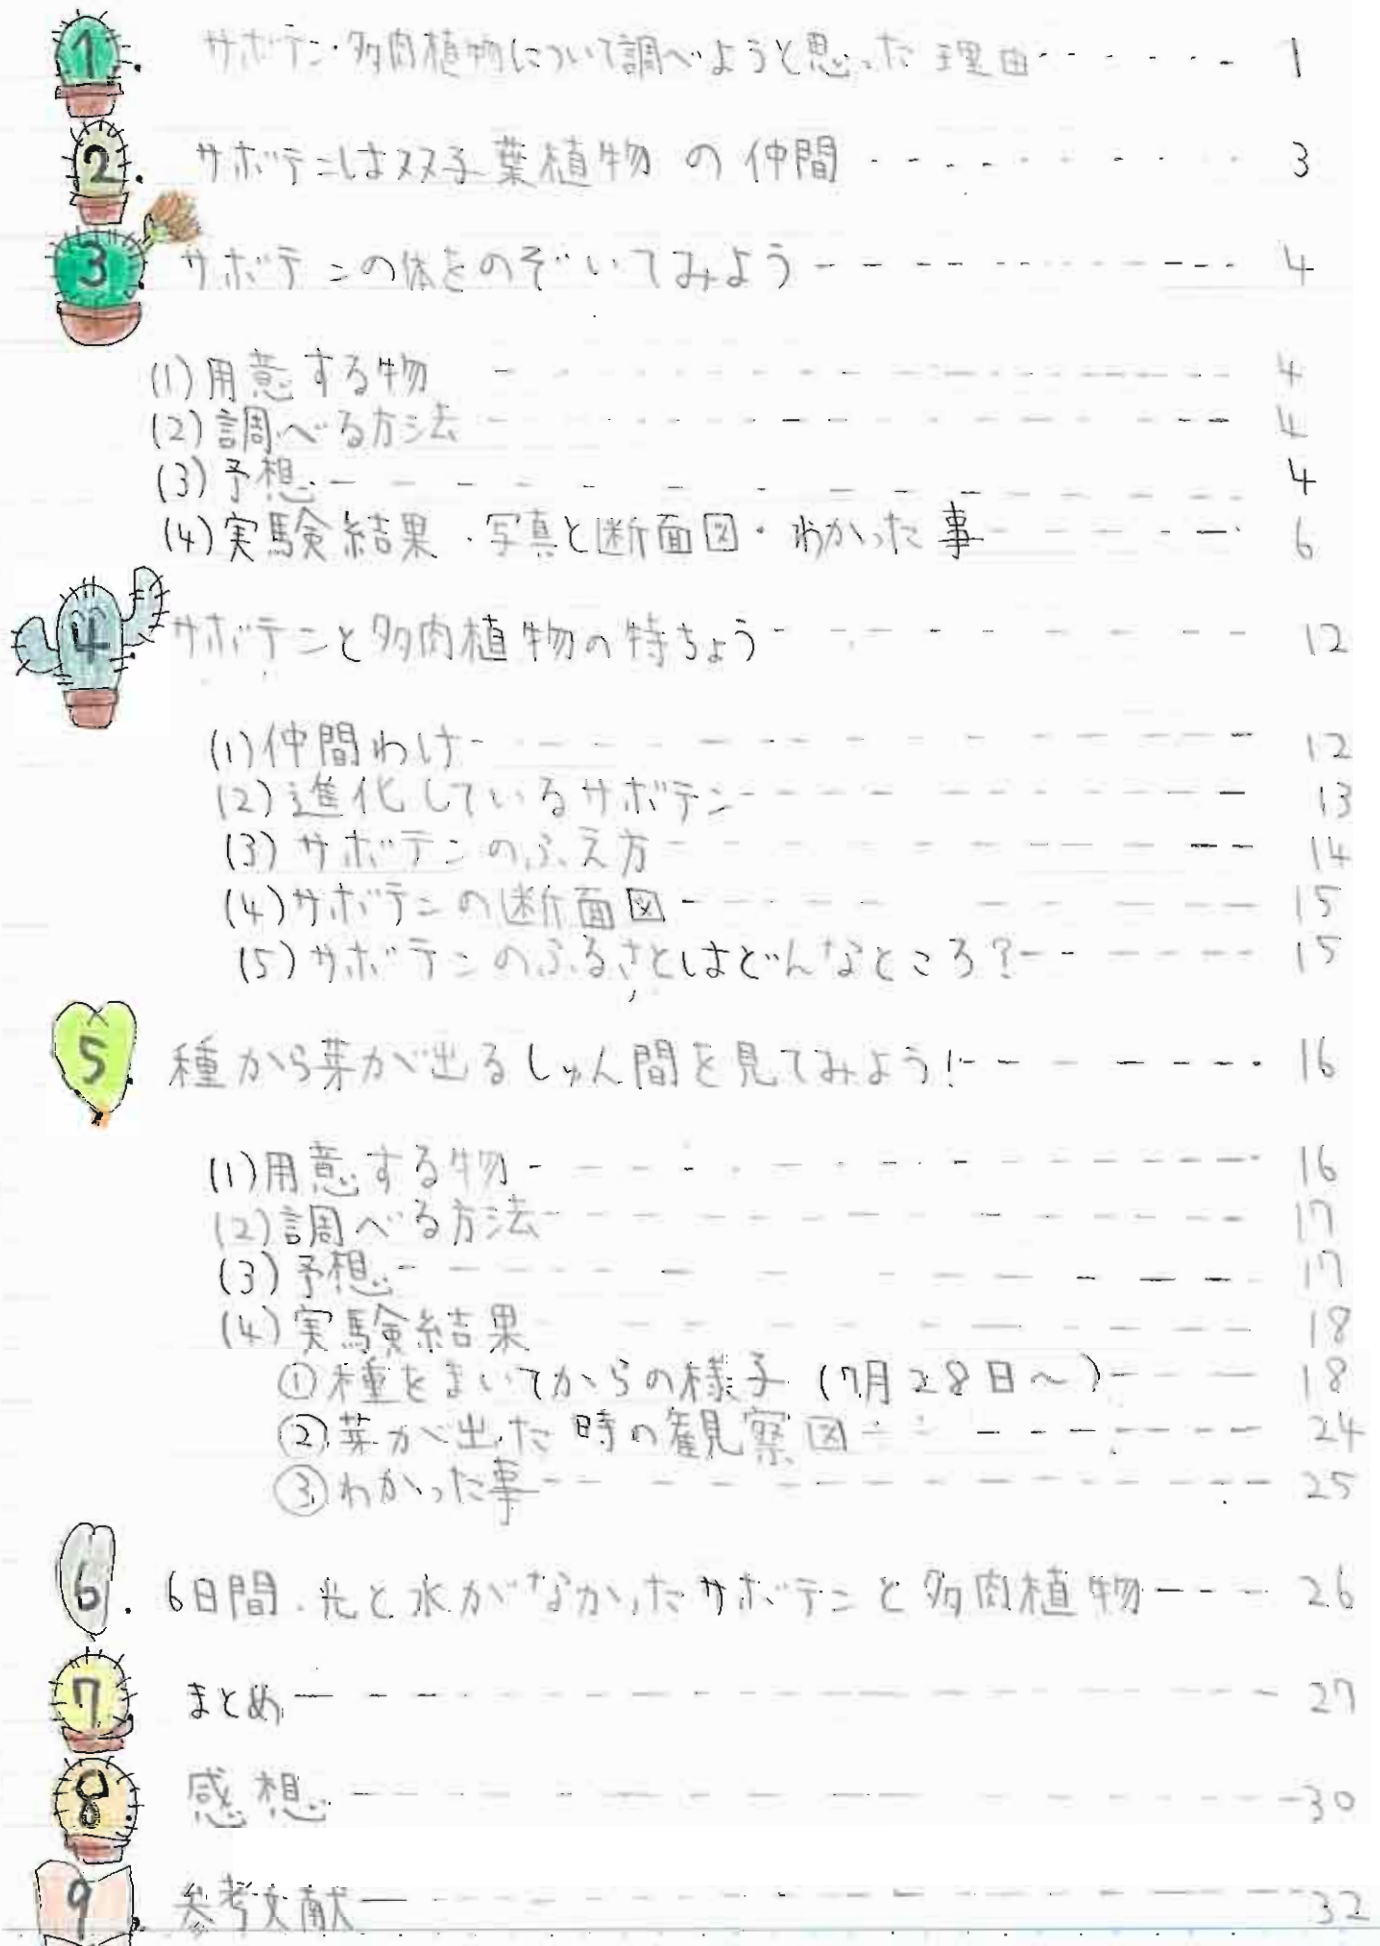 1. サボテン・多肉植物について調べようと思った理由------ 1
2. サボテンは双子葉植物の仲間------ 3
3 サボテンの体をのぞいてみよう------ 4
(1)用意する物------ 4
(2)調べる方法------ 4
(3)予想------ 4
(4)実験結果・写真と断面図・わかった事------ 6
4 サボテンと多肉植物の特ちょう------ 12
(1)仲間わけ------ 12
(2)進化しているサボテン------ 13
(3)サボテンのふえ方------ 14
(4)サボテンの断面図------ 15
(5)サボテンのふるさとはどんなところ?------ 15
5. 種から芽が出るしゅん間を見てみよう!------ 16
(1)用意する物------ 16
(2)調べる方法------ 17
(3)予想------ 17
(4)実験結果------ 18
①種をまいてからの様子(7月28日~)------ 18
②芽が出た時の観察図------ 24
③わかった事------ 25
6. 6日間、光と水がなかったサボテンと多肉植物---- 26
7. まとめ------ 27
8. 感想------ 30
9. 参考文献------ 32